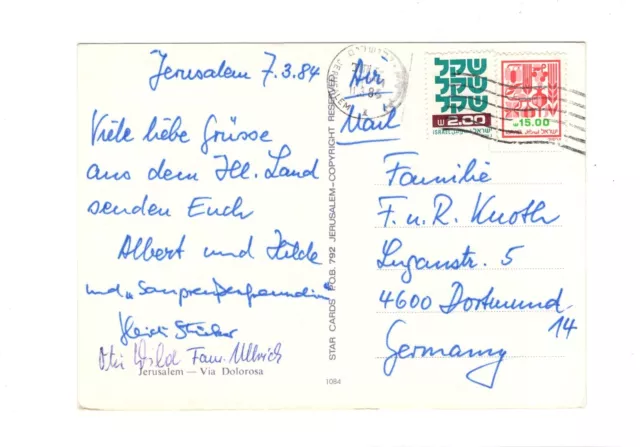 Jerusalem 7.3.84
Viele liebe Grüsse
aus dem Hl. Land
senden Euch
Albert und Hilde
und
Fam. Ullrich
Jerusalem — Via Dolorosa
STAR CARDS P.O.B. 792 JERUSALEM-COPYRIGHT RESERVED
1084
Air
Mail
JERUSALEM
שקל
שקל
שקל
2.00
ISRAEL ישראל
15.00
ישראל ISRAEL
Familie
F. u. R. Knoth
Luganstr. 5
4600 Dortmund
14
Germany